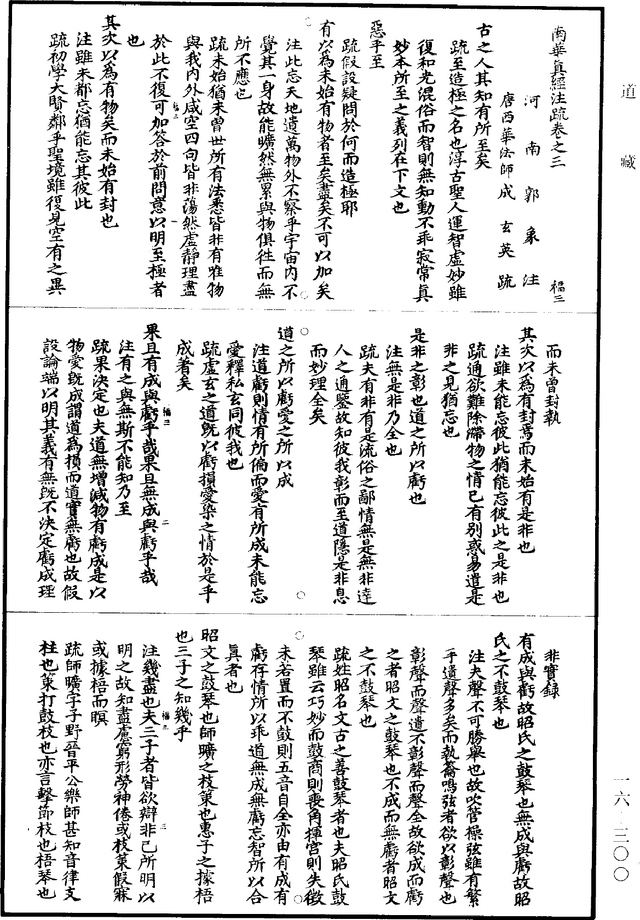 道藏
南華真經注疏卷之三
福三
河南郭象注
唐西華法師成玄英疏
古之人其知有所至矣
疏至造極之名也淳古聖人運智虛妙雖
復和光混俗而智則無知動不乖寂常真
妙本所至之義列在下文也
惡乎至
疏假設疑問於何而造極耶
有以為未始有物者至矣盡矣不可以加矣
注此忘天地遺萬物外不察乎宇宙內不
覺其一身故能曠然無累與物俱往而無
所不應也
疏未始猶未曾世所有法悉皆非有唯物
與我內外咸空四句皆非蕩然虛靜理盡
於此不復可加答於前問意以明至極者
也
其次以為有物矣而未始有封也
注雖未都忘猶能忘其彼此
疏初學大賢鄰乎聖境雖復見空有之異
而未曾封執
其次以為有封焉而未始有是非也
注雖未能忘彼此猶能忘彼此之是非也
疏通欲難除滯物之情已有別惑易遣是
非之見猶忘也
是非之彰也道之所以虧也
注無是非乃全也
疏夫有非有是流俗之鄙情無是無非達
人之通鑒故知彼我彰而至道隱是非息
而妙理全矣
道之所以虧愛之所以成
注道虧則情有所偏而愛有所成未能忘
愛釋私玄同彼我也
疏虛玄之道既以虧損愛染之情於是乎
成著矣
果且有成與虧乎哉果且無成與虧乎哉
注有之與無斯不能知乃至
疏果決定也夫道無增減物有虧成是以
物愛既成謂道為損而道實無虧也故假
設論端以明其義有無既不決定虧成理
非實錄
有成與虧故昭氏之鼓琴也無成與虧故昭
氏之不鼓琴也
注夫聲不可勝舉也故吹管操弦雖有繁
手遺聲多矣而執籥鳴弦者欲以彰聲也
彰聲而聲遺不彰聲而聲全故欲成而虧
之者昭文之鼓琴也不成而無虧者昭文
之不鼓琴也
疏姓昭名文古之善鼓琴者也夫昭氏鼓
琴雖云巧妙而鼓商則喪角揮宮則失徵
未若置而不鼓則五音自全亦由有成有
虧存情所以乖道無成無虧忘智所以合
真者也
昭文之鼓琴也師曠之枝策也惠子之據梧
也三子之知幾乎
注幾盡也夫三子者皆欲辯非己所明以
明之故知盡慮窮形勞神倦或枝策假寐
或據梧而瞑
疏師曠字子野晉平公樂師甚知音律支
柱也策打鼓枝也亦言擊節枝也梧琴也
一六·三〇〇